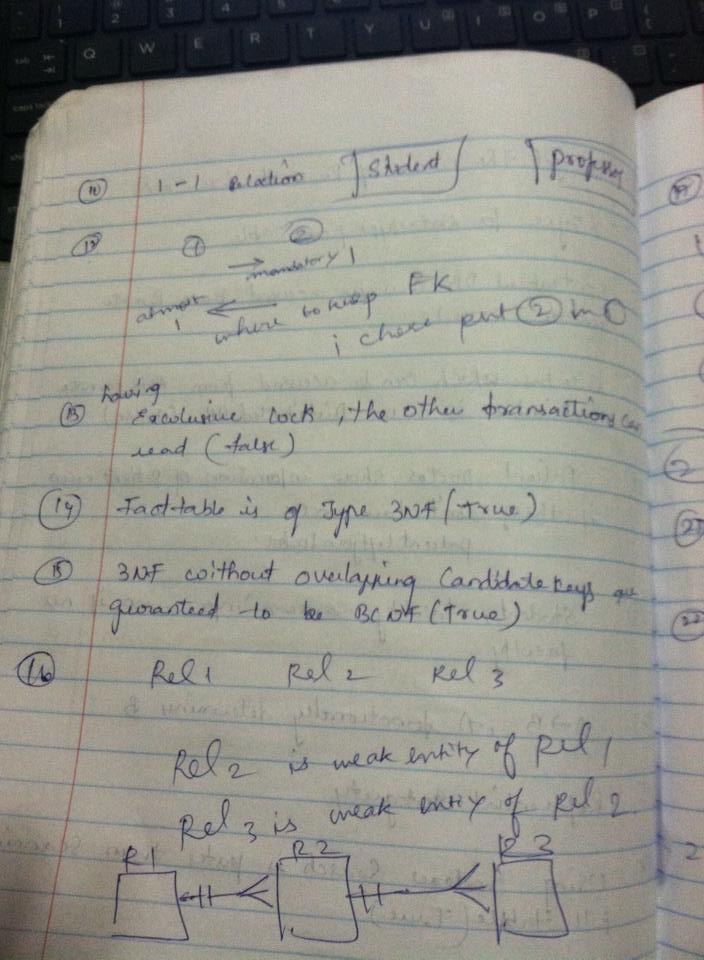 Q W E R T Y U I O P
10 1-1 Relation Student Professor
1 2
mandatory 1
atmost 1
where to keep FK
i chose put 2 in
Having
13 Exculusive lock, the other transactions can
read (false)
14 Facttable is of Type 3NF (True)
15 3NF without overlapping Candidate keys are
guranteed to be BCNF (True)
16 Rel 1 Rel 2 Rel 3
Rel 2 is weak entity of Rel 1
Rel 3 is weak entity of Rel 2
R1 R2 R3